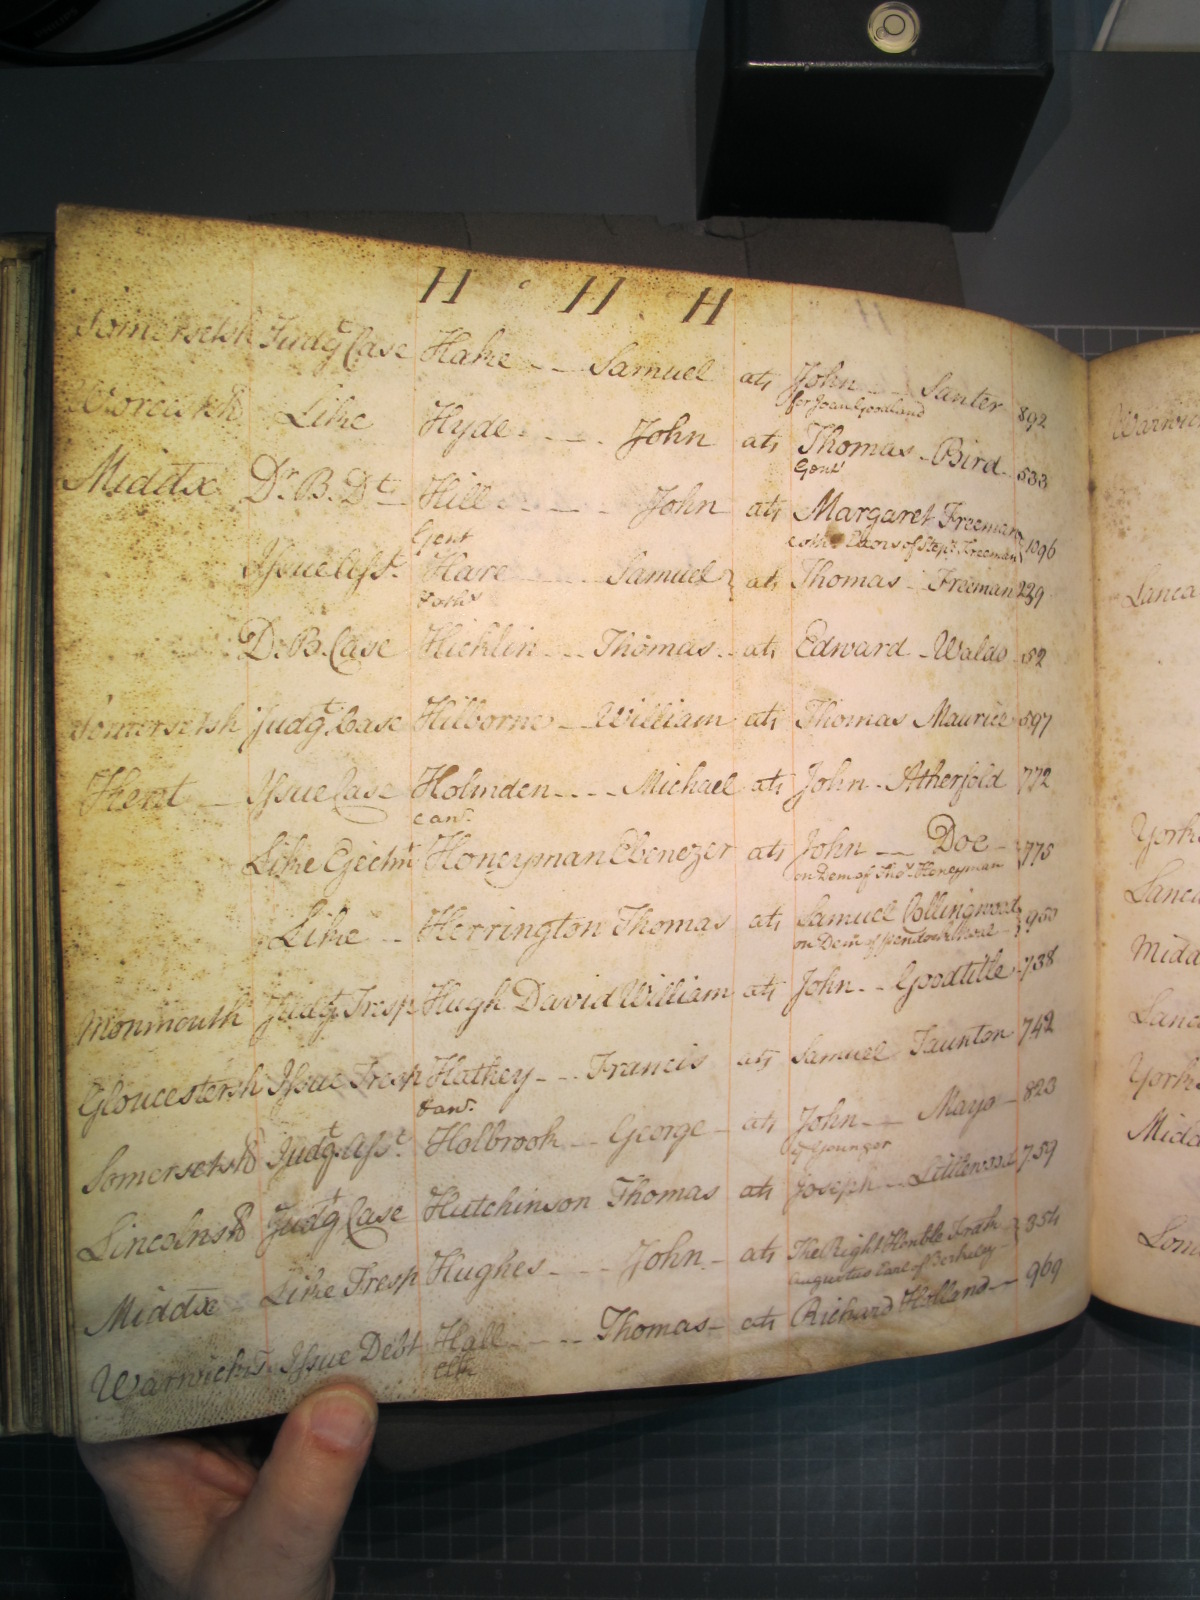 H H H
Somersetsh Judgt Case Hake Samuel ats John Santer 892
for Joan Goodland
Worcestsh Like Hyde John ats Thomas Bird 533
Gent
Middx Dr. B. Dt Hill John ats Margaret Freeman 1096
Gent Exors of Stepn Freeman
Issue Asst. Hare Samuel ats Thomas Freeman 239
D. B. Case Hicklin Thomas ats Edward Waldo 52
Somersetsh Judgt. Case Hilborne William ats Thomas Maurice 597
Kent Issue Case Holmden Michael ats John Atherfold 772
Like Ejectmt Honeyman Ebenezer ats John Doe 775
on Dem of Thos. Honeyman
Like Herrington Thomas ats Samuel Collingwood 950
on Dem of
Monmouth Judgt Tresp Hugh David William ats John Goodtitle 738
Gloucestersh Issue Tresp Hathey Francis ats Samuel Taunton 742
Somersetsh Judgt. Asst. Holbrook George ats John Mayo 823
ye Younger
Lincolnsh Judgt Case Hutchinson Thomas ats Joseph Littlewood 759
Middx Like Tresp Hughes John ats The Right Honble Frak 354
Augustus Earl of Berkeley
Warwicks Issue Debt Hall Thomas ats Richard Holland 969
Clk
Lanca
Yorks
Lanca
Midd
Lanc
Yorks
Midd